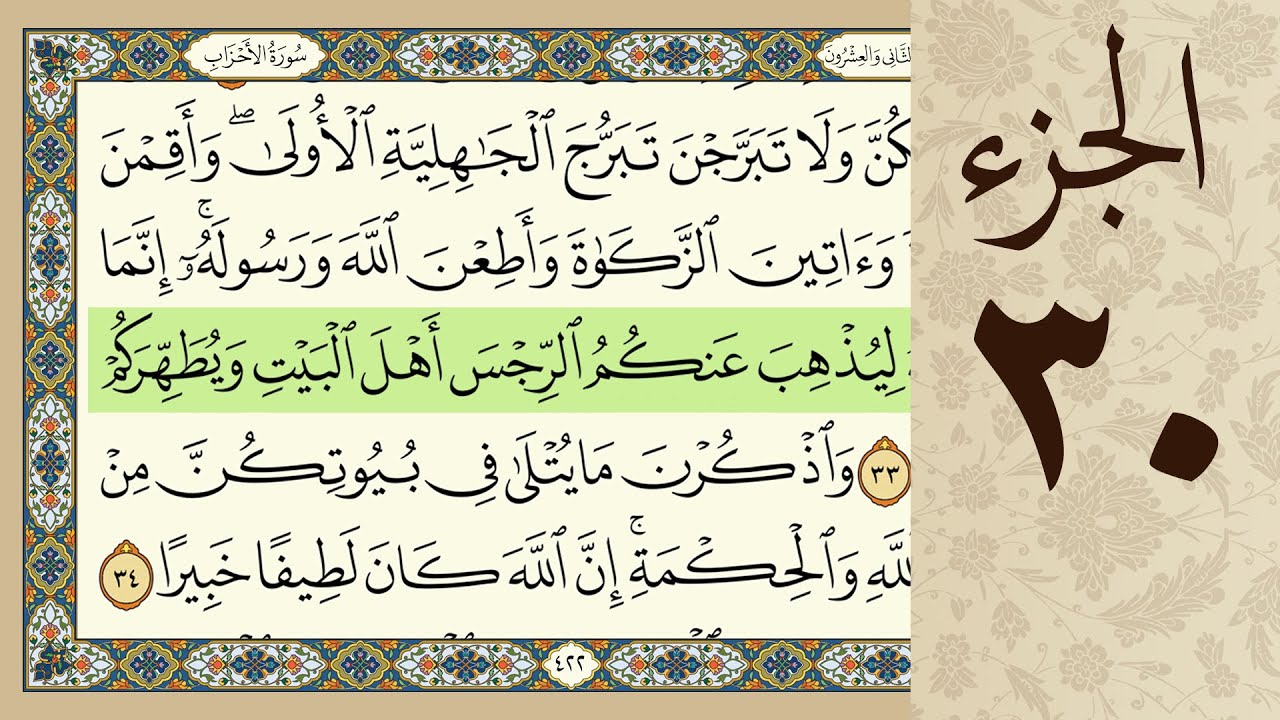 سُورَةُ الأَحْزَابِ
الثَّانِي وَالعِشْرُونَ
كُنَّ وَلَا تَبَرَّجْنَ تَبَرُّجَ ٱلْجَٰهِلِيَّةِ ٱلْأُولَىٰۖ وَأَقِمْنَ
وَءَاتِينَ ٱلزَّكَوٰةَ وَأَطِعْنَ ٱللَّهَ وَرَسُولَهُۥٓۚ إِنَّمَا
لِيُذْهِبَ عَنكُمُ ٱلرِّجْسَ أَهْلَ ٱلْبَيْتِ وَيُطَهِّرَكُمْ
٣٣ وَٱذْكُرْنَ مَا يُتْلَىٰ فِى بُيُوتِكُنَّ مِنْ
للَّهِ وَٱلْحِكْمَةِۚ إِنَّ ٱللَّهَ كَانَ لَطِيفًا خَبِيرًا ٣٤
٤٢٢
الجزء
٣٠